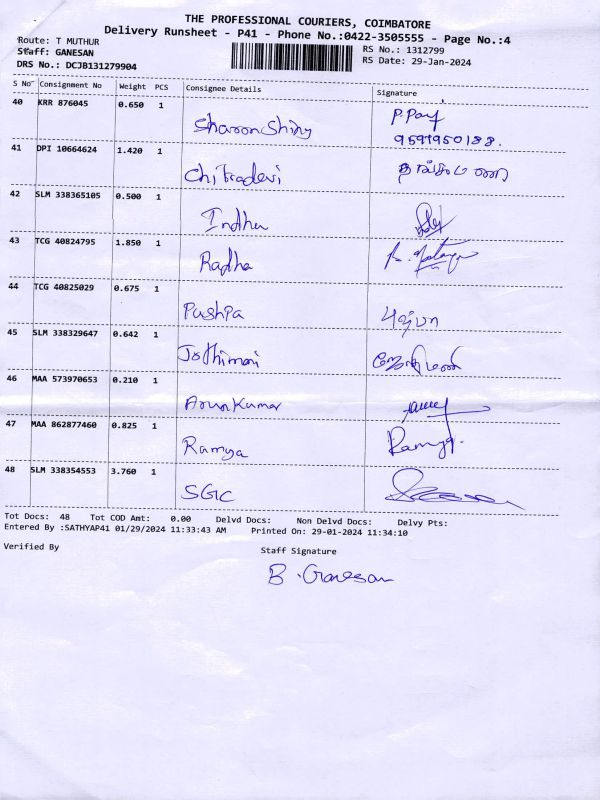 THE PROFESSIONAL COURIERS, COIMBATORE
Delivery Runsheet - P41 - Phone No.:0422-3505555 - Page No.:4
Route: T MUTHUR
RS No.: 1312799
Staff: GANESAN
RS Date: 29-Jan-2024
DRS No.: DCJB131279904
S No Consignment No Weight PCS Consignee Details Signature
40 KRR 876045 0.650 1 Sharon Shiny
41 DPI 10664624 1.420 1 Chitradevi
42 SLM 338365105 0.500 1 Indhu
43 TCG 40824795 1.850 1 Radha
44 TCG 40825029 0.675 1 Pushpa புஷ்பா
45 SLM 338329647 0.642 1 Jothimani ஜோதிமணி
46 MAA 573970653 0.210 1 Arunkumar
47 MAA 862877460 0.825 1 Ramya Ramya.
48 SLM 338354553 3.760 1 SGC
Tot Docs: 48 Tot COD Amt: 0.00 Delvd Docs: Non Delvd Docs: Delvy Pts:
Entered By :SATHYAP41 01/29/2024 11:33:43 AM Printed On: 29-01-2024 11:34:10
Verified By Staff Signature
B. Ganesan